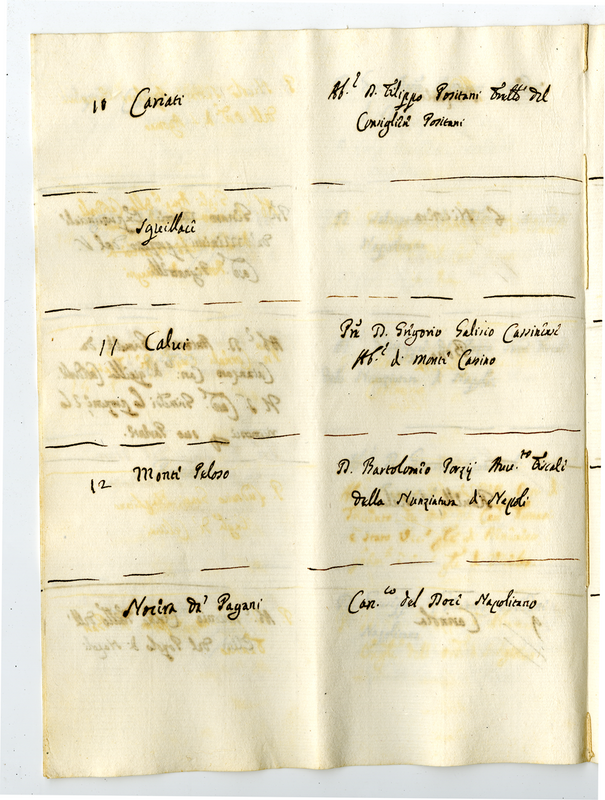 10 Cariati
Ab.e D. Filippo Positani Fratto del
Consiglier Positani
Squillaci
11 Calui
Pre D. Grigorio Galisio Cassinensi
Ab.e di Monti Casino
12 Monti Peloso
D. Bartolomeo Porzij Auu.to Fiscali
della Nunziatura di Napoli
Nocira da' Pagani
Can.co del Doce Napolitano